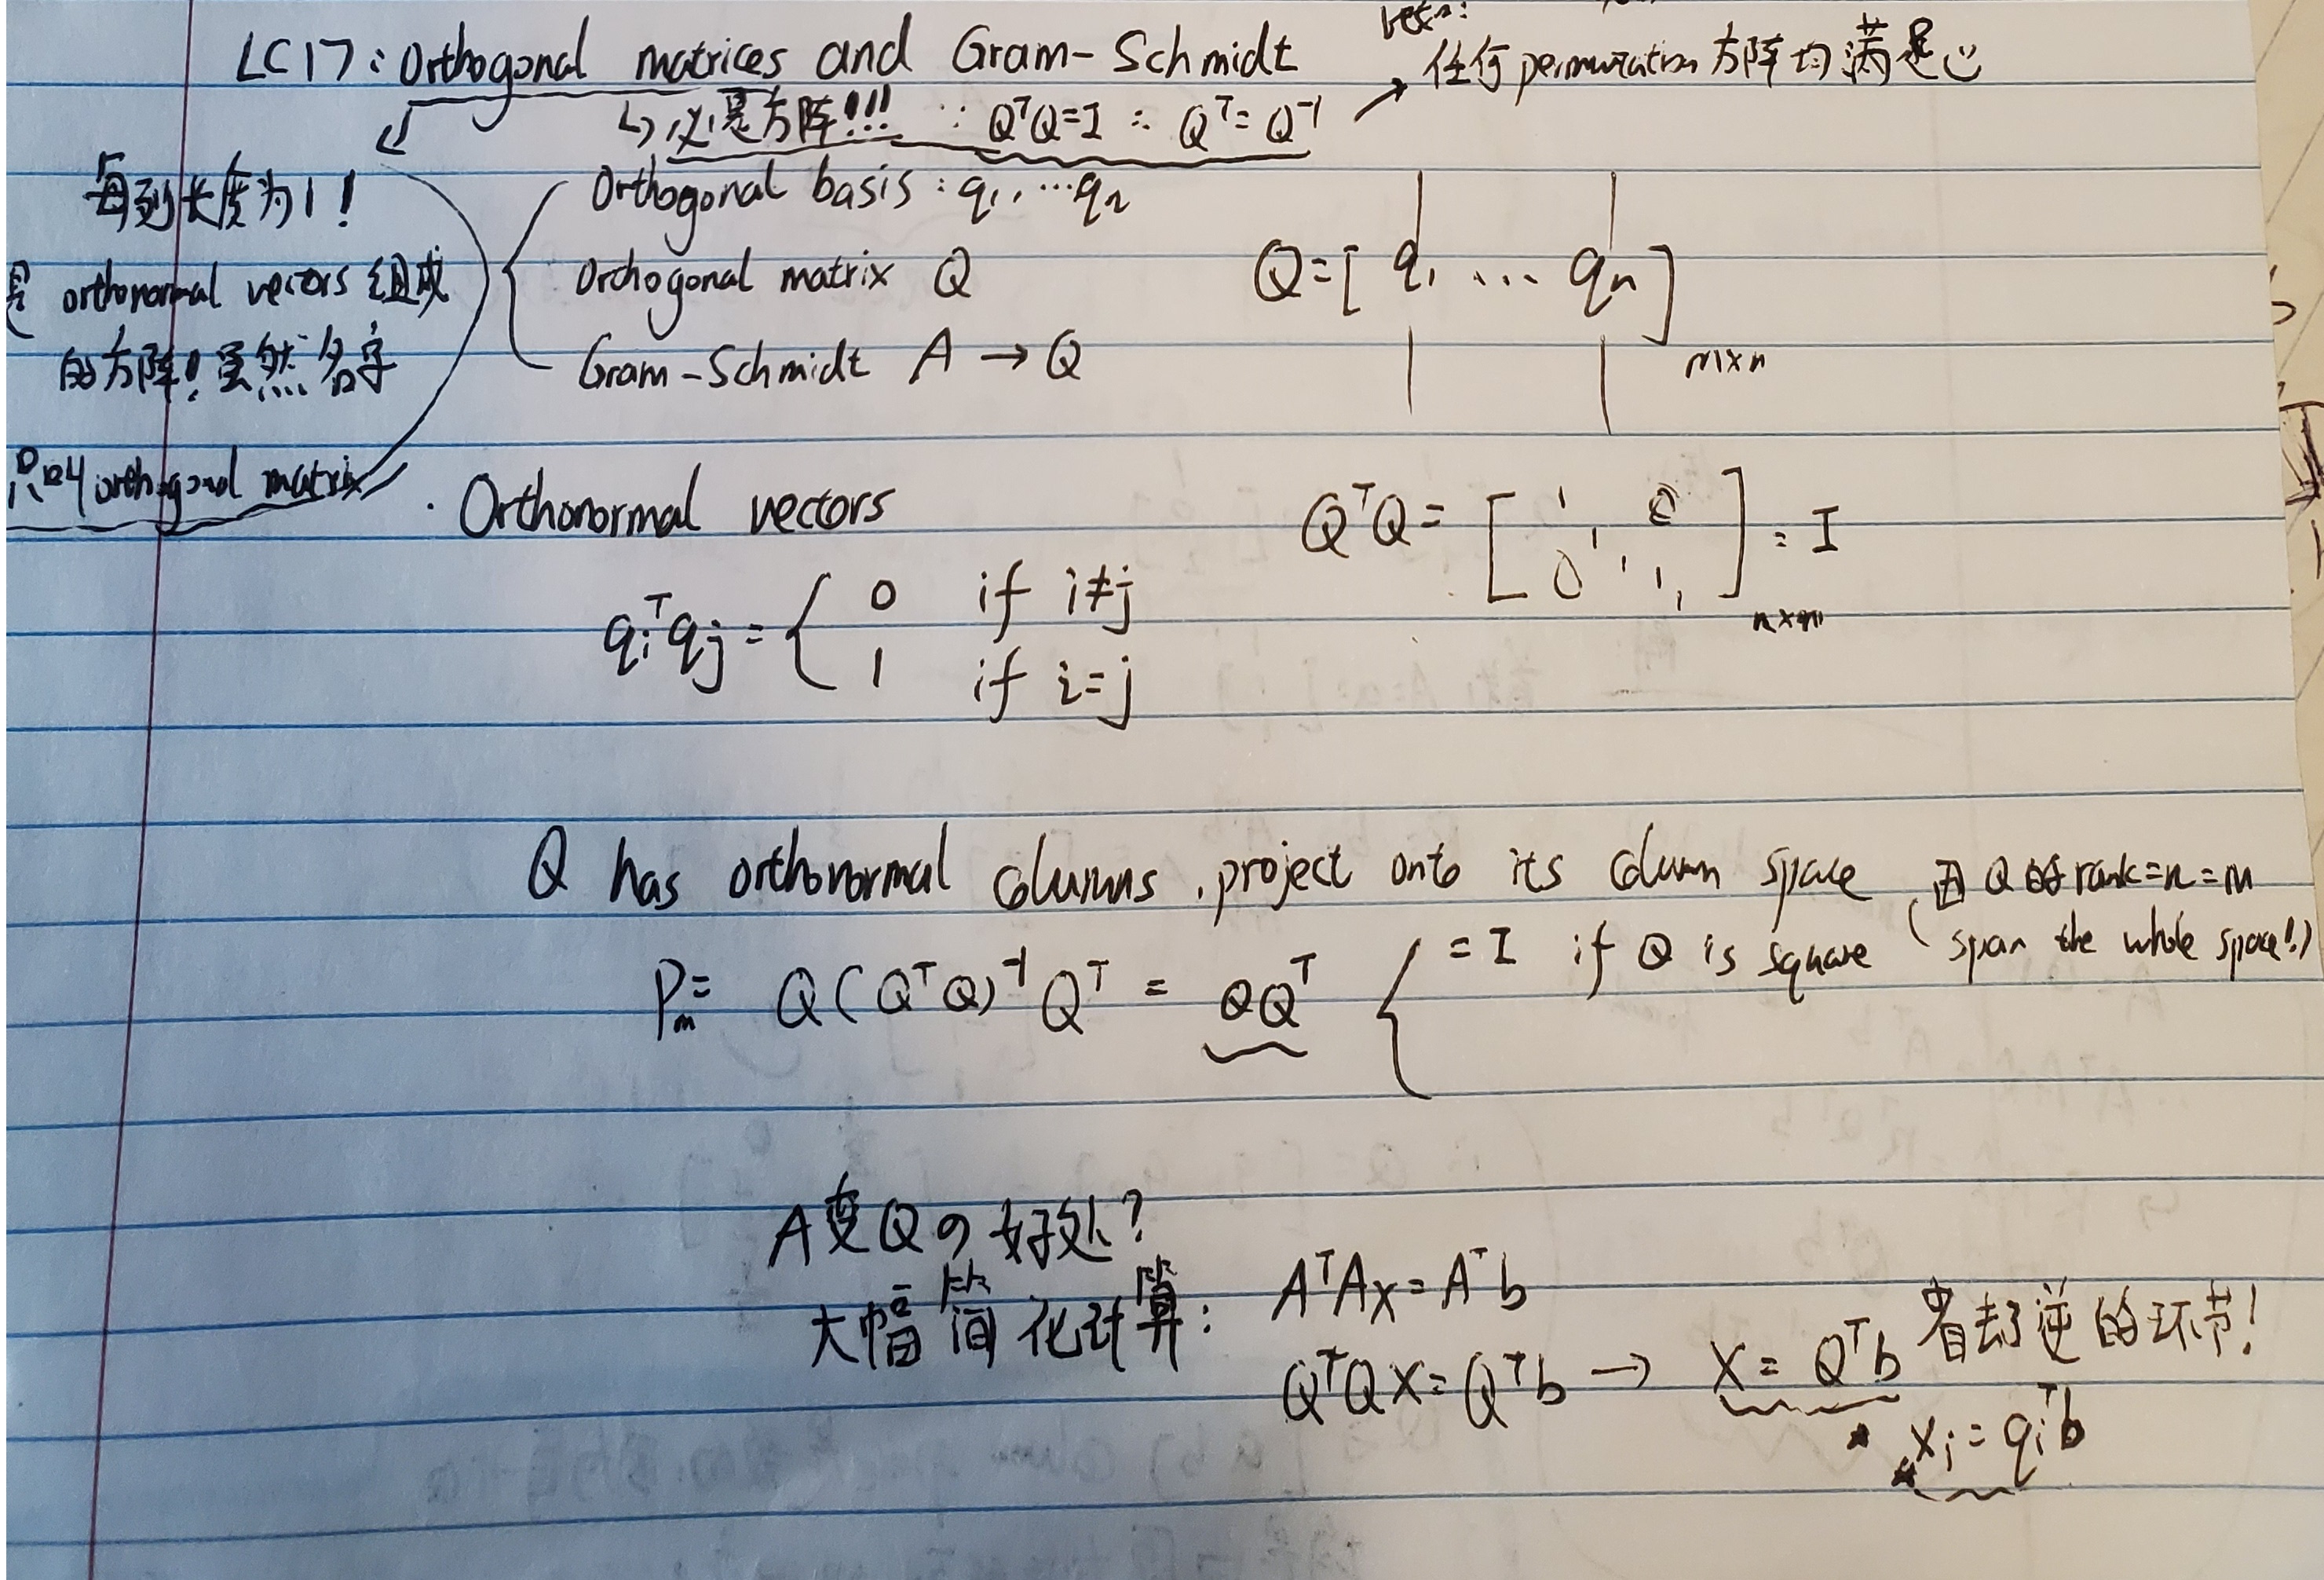 LC17: Orthogonal matrices and Gram-Schmidt
任何permutation方阵均满足
↳必是方阵!!! ∵ QᵀQ=I ∴ Qᵀ=Q⁻¹ →
每列长度为1!
是 orthonormal vectors 组成
的方阵!虽然名字
只叫orthogonal matrix
Orthogonal basis: q₁, ...qₙ
Orthogonal matrix Q
Gram-Schmidt A → Q
Q=[ q₁ ... qₙ ] m×n
· Orthonormal vectors
QᵀQ = [ 1 1 0 0 1 1 1 ] = I
qᵢᵀqⱼ = { 0 if i≠j
1 if i=j
Q has orthonormal columns, project onto its column space
P = Q(QᵀQ)⁻¹Qᵀ = QQᵀ { = I if Q is square
(因Q的rank=n=m
span the whole space!)
A变Qの好处?
大幅简化计算: AᵀAx=Aᵀb
QᵀQx=Qᵀb → x=Qᵀb 省去了逆的环节!
xᵢ=qᵢᵀb